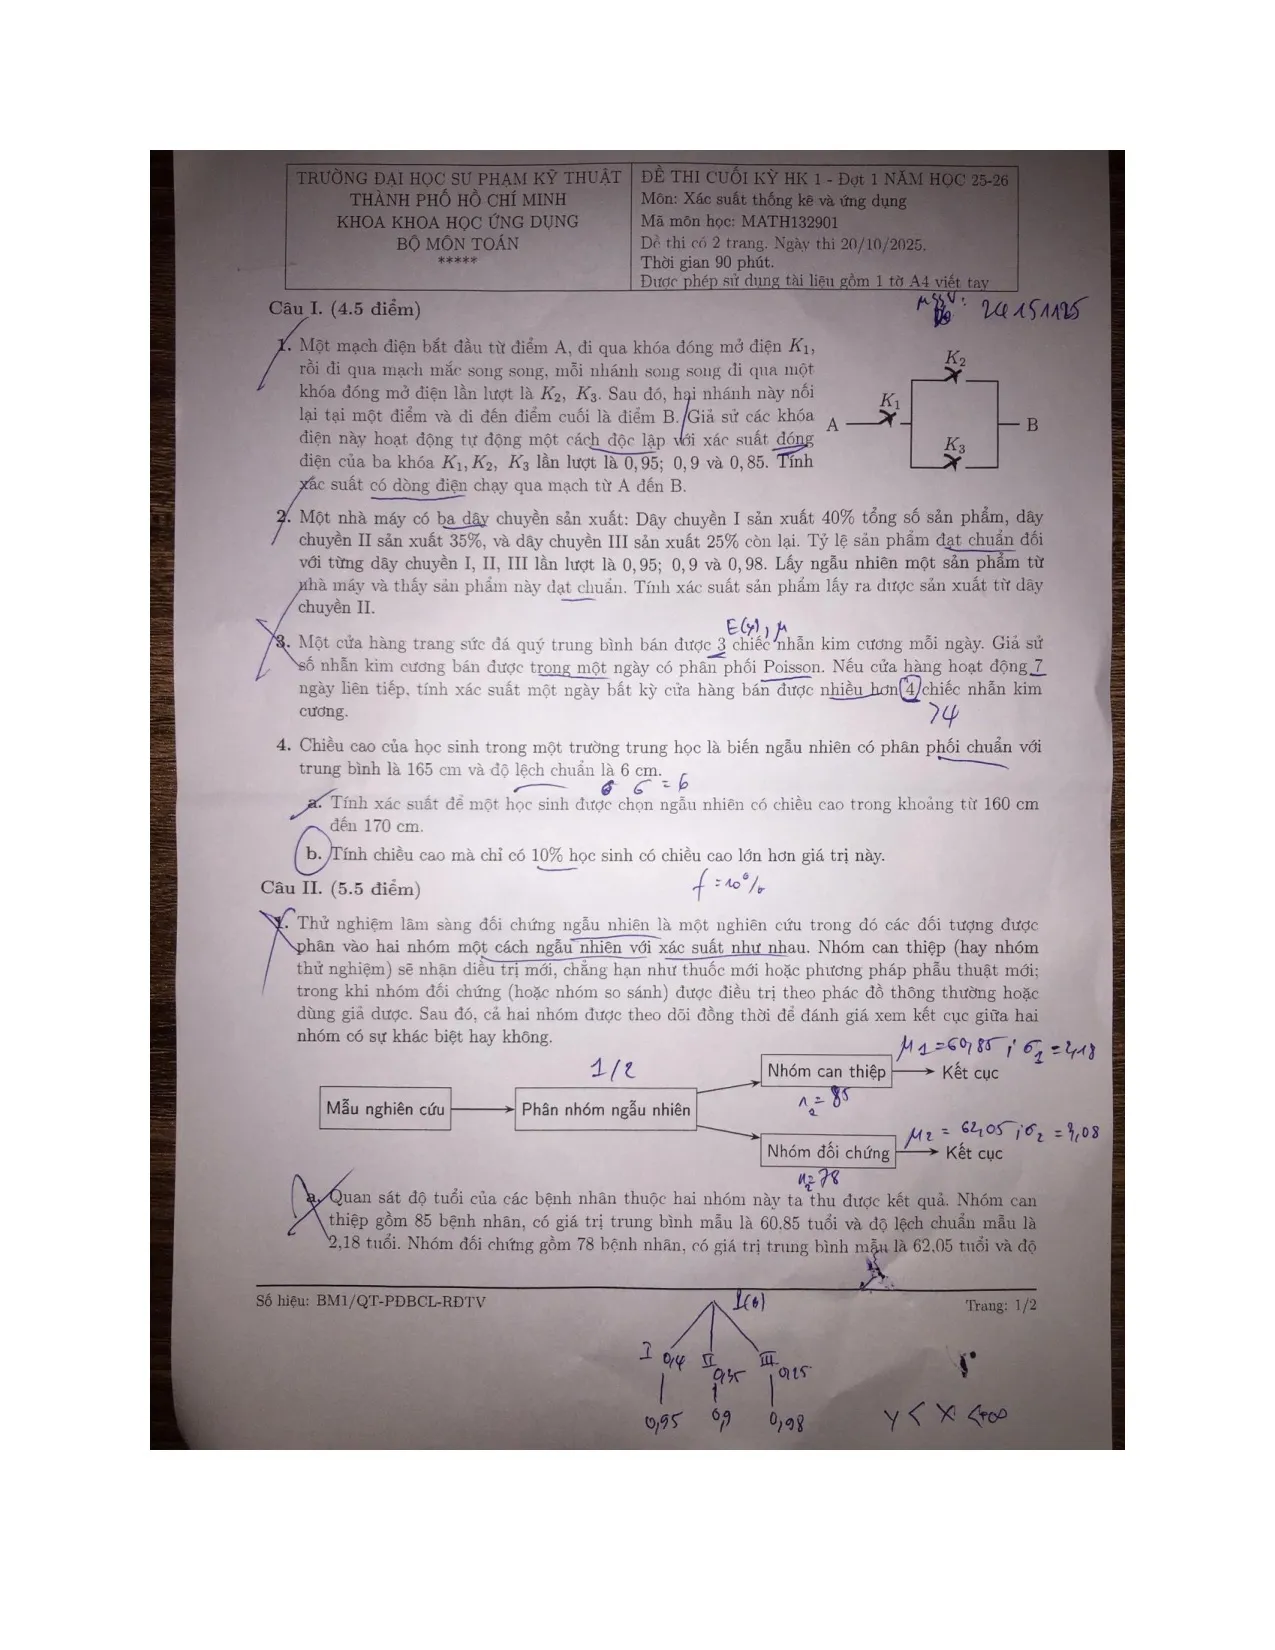 TRƯỜNG ĐẠI HỌC SƯ PHẠM KỸ THUẬT
THÀNH PHỐ HỒ CHÍ MINH
KHOA KHOA HỌC ỨNG DỤNG
BỘ MÔN TOÁN
*****
ĐỀ THI CUỐI KỲ HK 1 - Đợt 1 NĂM HỌC 25-26
Môn: Xác suất thống kê và ứng dụng
Mã môn học: MATH132901
Đề thi có 2 trang. Ngày thi 20/10/2025.
Thời gian 90 phút.
Được phép sử dụng tài liệu gồm 1 tờ A4 viết tay
Câu I. (4.5 điểm)
24151125
1. Một mạch điện bắt đầu từ điểm A, đi qua khóa đóng mở điện K₁,
rồi đi qua mạch mắc song song, mỗi nhánh song song đi qua một
khóa đóng mở điện lần lượt là K₂, K₃. Sau đó, hai nhánh này nối
lại tại một điểm và đi đến điểm cuối là điểm B. Giả sử các khóa
điện này hoạt động tự động một cách độc lập với xác suất đóng
điện của ba khóa K₁, K₂, K₃ lần lượt là 0,95; 0,9 và 0,85. Tính
xác suất có dòng điện chạy qua mạch từ A đến B.
K₂
K₁
A
B
K₃
2. Một nhà máy có ba dây chuyền sản xuất: Dây chuyền I sản xuất 40% tổng số sản phẩm, dây
chuyền II sản xuất 35%, và dây chuyền III sản xuất 25% còn lại. Tỷ lệ sản phẩm đạt chuẩn đối
với từng dây chuyền I, II, III lần lượt là 0,95; 0,9 và 0,98. Lấy ngẫu nhiên một sản phẩm từ
nhà máy và thấy sản phẩm này đạt chuẩn. Tính xác suất sản phẩm lấy ra được sản xuất từ dây
chuyền II.
E(y), μ
3. Một cửa hàng trang sức đá quý trung bình bán được 3 chiếc nhẫn kim cương mỗi ngày. Giả sử
số nhẫn kim cương bán được trong một ngày có phân phối Poisson. Nếu cửa hàng hoạt động 7
ngày liên tiếp, tính xác suất một ngày bất kỳ cửa hàng bán được nhiều hơn 4 chiếc nhẫn kim
cương.
>4
4. Chiều cao của học sinh trong một trường trung học là biến ngẫu nhiên có phân phối chuẩn với
trung bình là 165 cm và độ lệch chuẩn là 6 cm.
σ = 6
a. Tính xác suất để một học sinh được chọn ngẫu nhiên có chiều cao trong khoảng từ 160 cm
đến 170 cm.
b. Tính chiều cao mà chỉ có 10% học sinh có chiều cao lớn hơn giá trị này.
f = 10%
Câu II. (5.5 điểm)
1. Thử nghiệm lâm sàng đối chứng ngẫu nhiên là một nghiên cứu trong đó các đối tượng được
phân vào hai nhóm một cách ngẫu nhiên với xác suất như nhau. Nhóm can thiệp (hay nhóm
thử nghiệm) sẽ nhận điều trị mới, chẳng hạn như thuốc mới hoặc phương pháp phẫu thuật mới;
trong khi nhóm đối chứng (hoặc nhóm so sánh) được điều trị theo phác đồ thông thường hoặc
dùng giả dược. Sau đó, cả hai nhóm được theo dõi đồng thời để đánh giá xem kết cục giữa hai
nhóm có sự khác biệt hay không.
μ1 = 60,85 ; σ1 = 2,18
1/2
Nhóm can thiệp
Kết cục
n2 = 85
Mẫu nghiên cứu
Phân nhóm ngẫu nhiên
μ2 = 62,05 ; σ2 = 3,08
Nhóm đối chứng
Kết cục
n2 = 78
a. Quan sát độ tuổi của các bệnh nhân thuộc hai nhóm này ta thu được kết quả. Nhóm can
thiệp gồm 85 bệnh nhân, có giá trị trung bình mẫu là 60.85 tuổi và độ lệch chuẩn mẫu là
2,18 tuổi. Nhóm đối chứng gồm 78 bệnh nhân, có giá trị trung bình mẫu là 62,05 tuổi và độ
Số hiệu: BM1/QT-PĐBCL-RĐTV
Trang: 1/2
I 0,4 II 0,35 III 0,25
0,95 0,9 0,98
Y < X < +∞